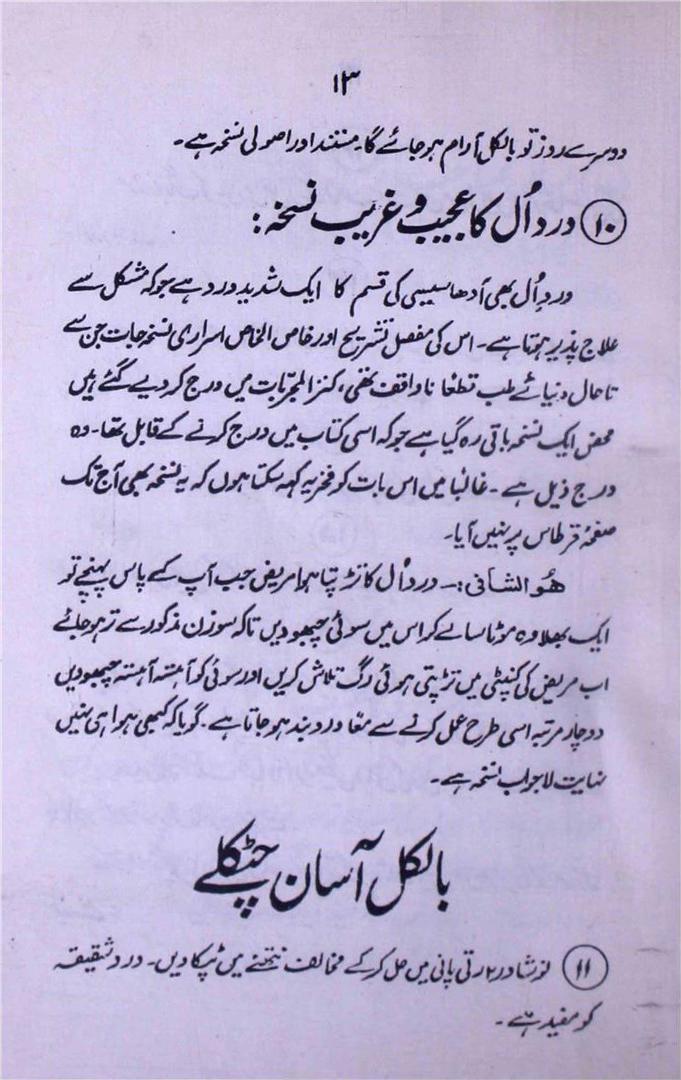 ۱۳
دوسرے روز تو بالکل آرام ہو جائے گا۔ مستند اور اصولی نسخہ ہے۔
۱۰ درد اُل کا عجیب و غریب نسخہ:
درد اُل بھی آدھا سیسی کی قسم کا ایک شدید درد ہے جو کہ مشکل سے
علاج پذیر ہوتا ہے۔ اس کی مفصل تشریح اور خاص الخاص اسراری نسخہ جات جن سے
تا حال دنیائے طب قطعاً ناواقف تھی، کنز المجربات میں درج کر دیے گئے ہیں
محض ایک نسخہ باقی رہ گیا ہے جو کہ اسی کتاب میں درج کرنے کے قابل تھا۔ وہ
درج ذیل ہے۔ غالباً میں اس بات کو فخریہ کہہ سکتا ہوں کہ یہ نسخہ بھی آج تک
صفحۂ قرطاس پر نہیں آیا۔
ھُو الشافی:۔ درد اُل کا تڑپتا ہوا مریض جب آپ کے پاس پہنچے تو
ایک بھلاوہ موٹا سا لے کر اس میں سوئی چبھو دیں تاکہ سوزن مذکور سے تر ہو جائے
اب مریض کی کنپٹی میں تڑپتی ہوئی رگ تلاش کریں اور سوئی کو آہستہ آہستہ چبھو دیں
دو چار مرتبہ اسی طرح عمل کرنے سے معاً درد بند ہو جاتا ہے۔ گویا کہ کبھی ہوا ہی نہیں
نہایت لاجواب نسخہ ہے۔
بالکل آسان چٹکلے
۱۱ نوشادر ۲ رتی پانی میں حل کر کے مخالف نتھنے میں ٹپکا دیں۔ درد شقیقہ
کو مفید ہے۔